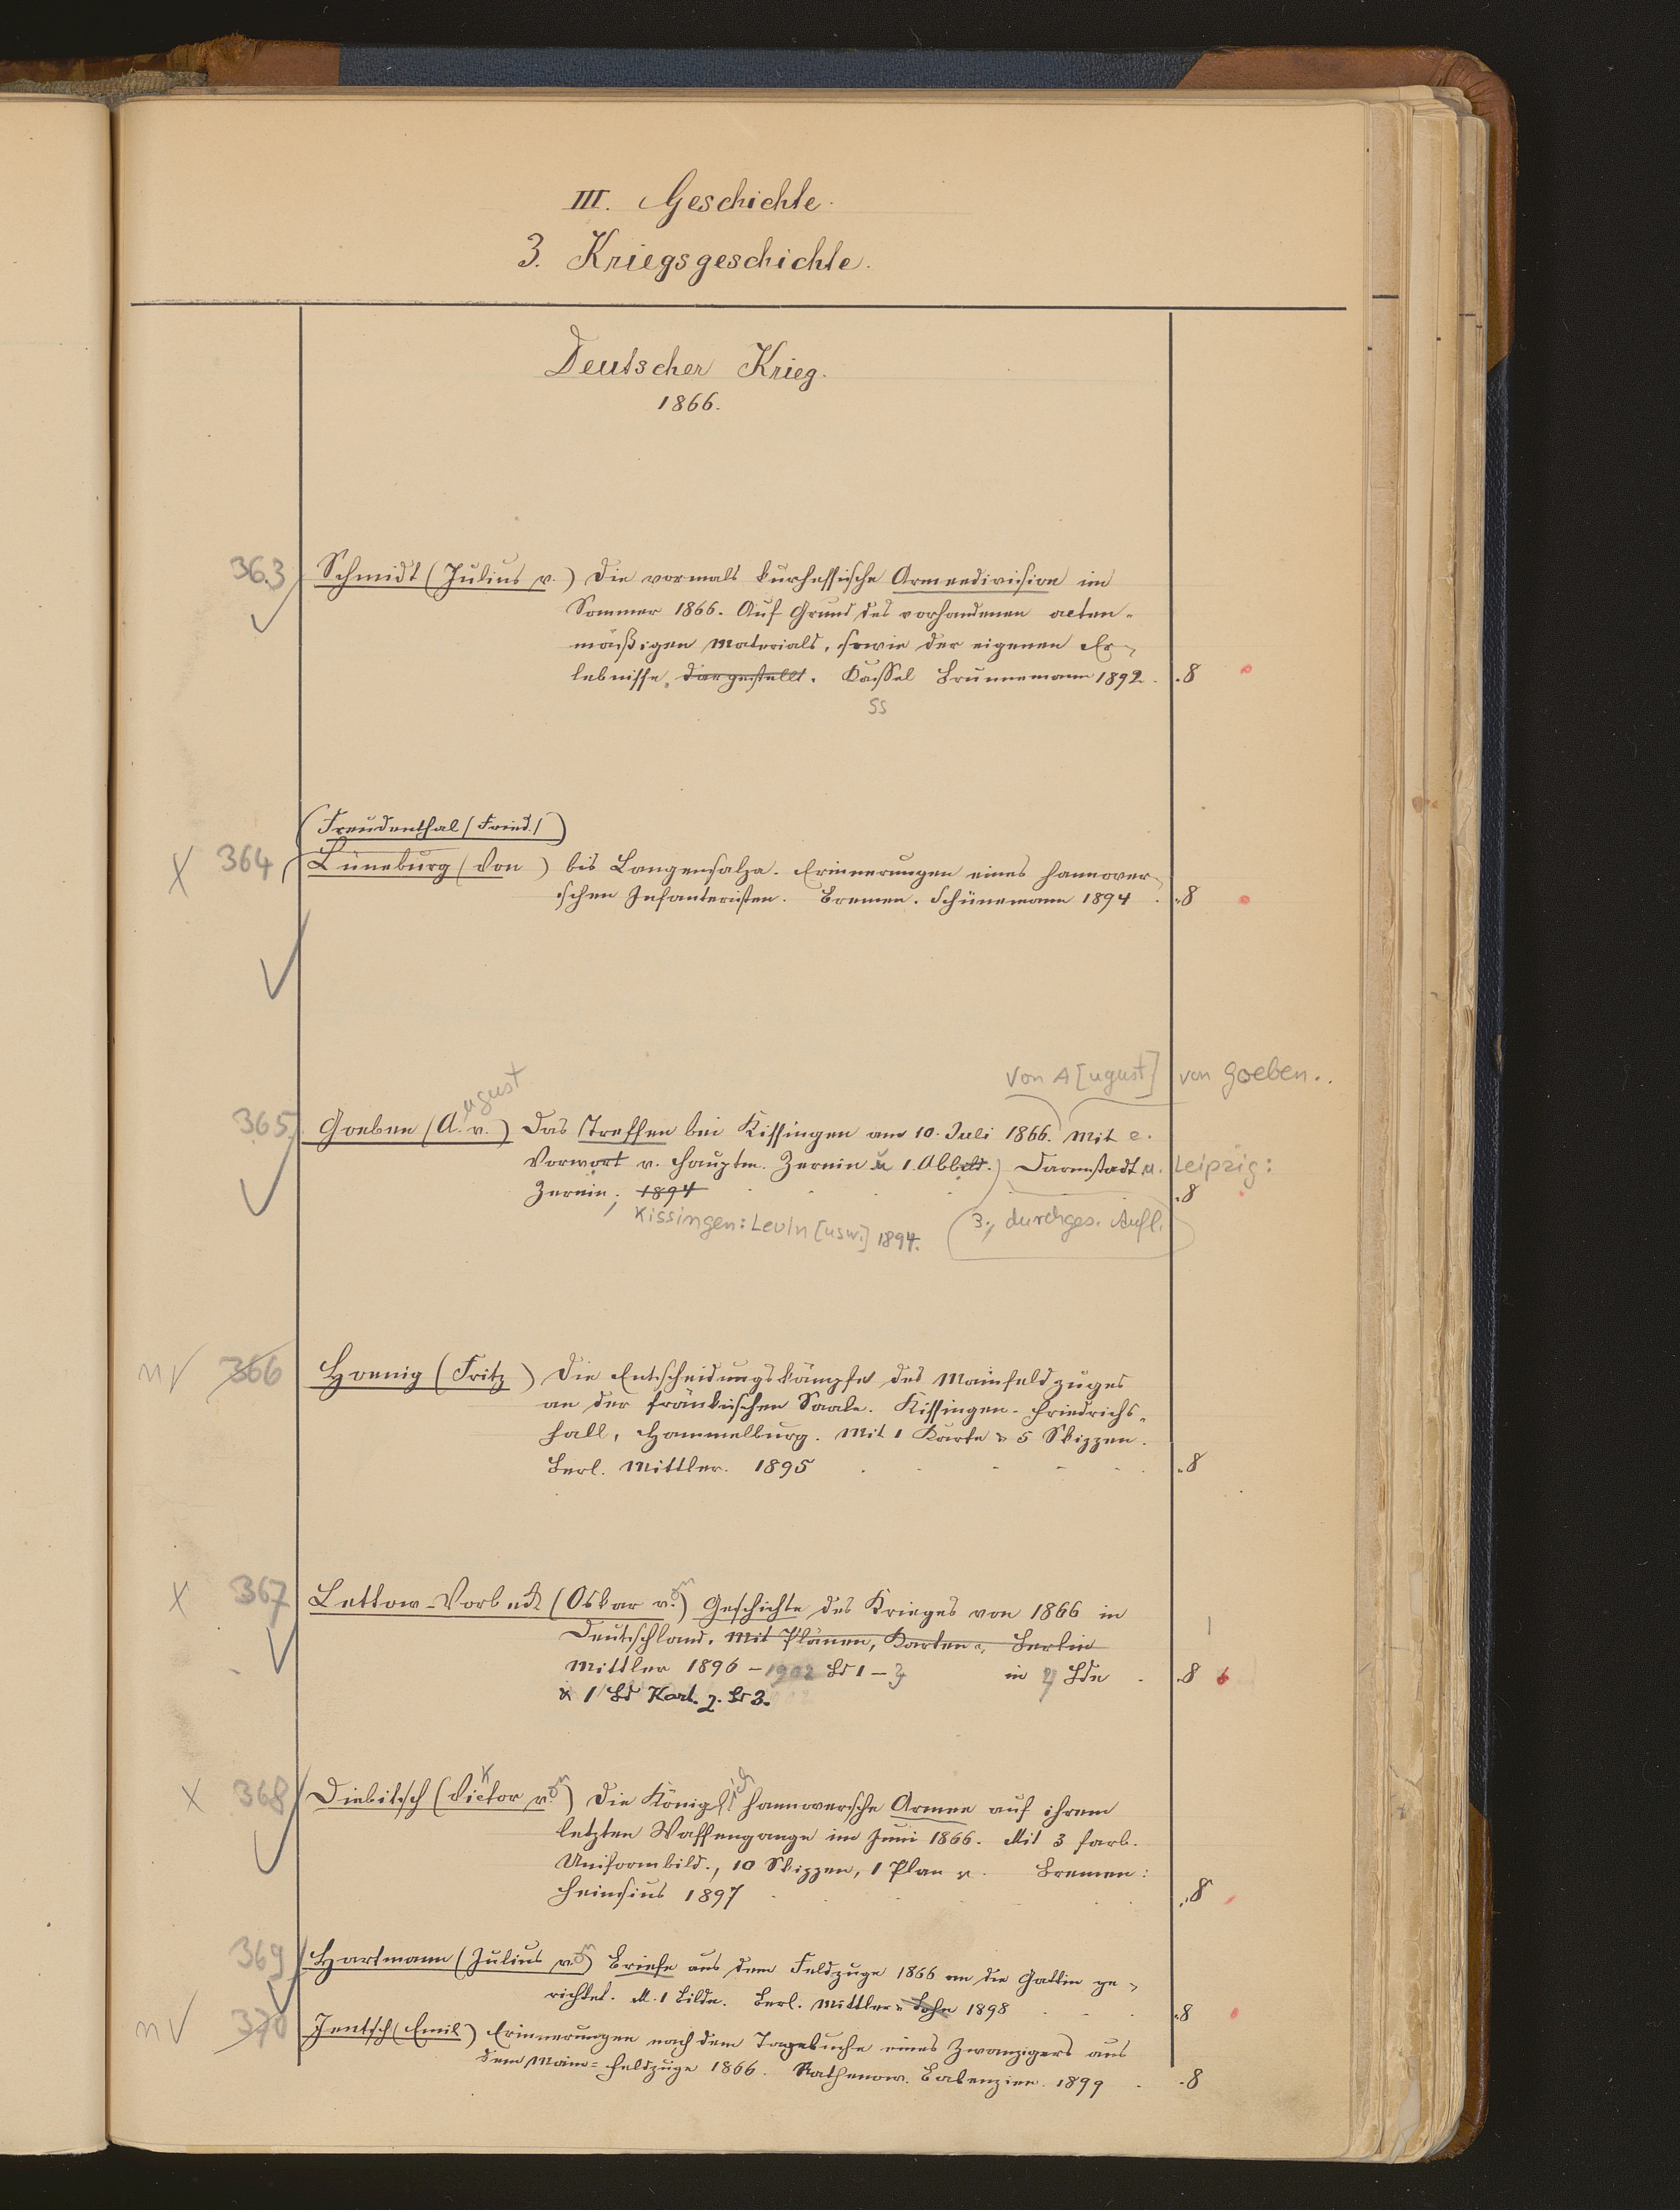 III. Geschichte.
3. Kriegsgeschichte.
Deutscher Krieg.
1866.
363 Schmidt (Julius v.) Die vormals kurhessische Armeedivision im
Sommer 1866. Auf Grund des vorhandenen acten-
mäßigen Materials, sowie der eigenen Er-
lebnisse dargestellt. Kassel Brunnemann 1892. 8
ss
(Freudenthal (Fried.))
X 364 Lüneburg (Von) bis Langensalza. Erinnerungen eines hannover-
schen Infanteristen. Bremen. Schünemann 1894. 8
Von A[ugust] von Goeben..
365. Goeben (A.ugust v.) Das Treffen bei Kissingen am 10. Juli 1866. Mit e.
Vorwort v. Hauptm. Zernin u 1. Abbild.) Darmstadt u. Leipzig:
Zernin, 1894 8
Kissingen: Levin [usw.] 1894. 3., durchges. Aufl.
nV 366 Hoenig (Fritz) Die Entscheidungskämpfe des Mainfeldzuges
an der fränkischen Saale. Kissingen- Friedrichs-
hall, Hammelburg. Mit 1 Karte & 5 Skizzen.
Berl. Mittler. 1895 8
X 367 Lettow-Vorbeck (Oskar von) Geschichte des Krieges von 1866 in
Deutschland. Mit Plänen, Karten Berlin
Mittler 1896 - 1902 Bd 1 - 3 in 4 Bdn 8
& 1 Bd Kart. z. Bd 3.
X 368 Diebitsch (Victor von) Die Königlich hannoversche Armee auf ihrem
letzten Waffengange im Juni 1866. Mit 3 farb.
Uniformbild., 10 Skizzen, 1 Plan Bremen:
Heinsius 1897 8
369 Hartmann (Julius von) Briefe aus dem Feldzuge 1866 an die Gattin ge-
richtet. M. 1 Bilde. Berl. Mittler & Sohn 1898 8
nV 370 Jentsch (Emil) Erinnerungen nach dem Tagebuche eines Zwanzigers aus
dem Main-Feldzuge 1866. Rathenow. Babenzien. 1899 8